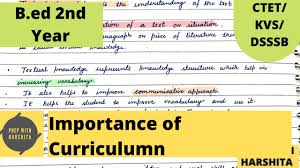 B.ed 2nd
Year
CTET/
KVS/
DSSSB
the understanding of the text
of a text or situation
paragraph or piece of literary
Textual knowledge represents knowledge structure which help in
increasing vocabulary.
It also helps to improve communicative approach.
It helps the student to improve vocabulary and use it.
PREP WITH
HARSHITA
Importance of
Curriculumn
HARSHITA